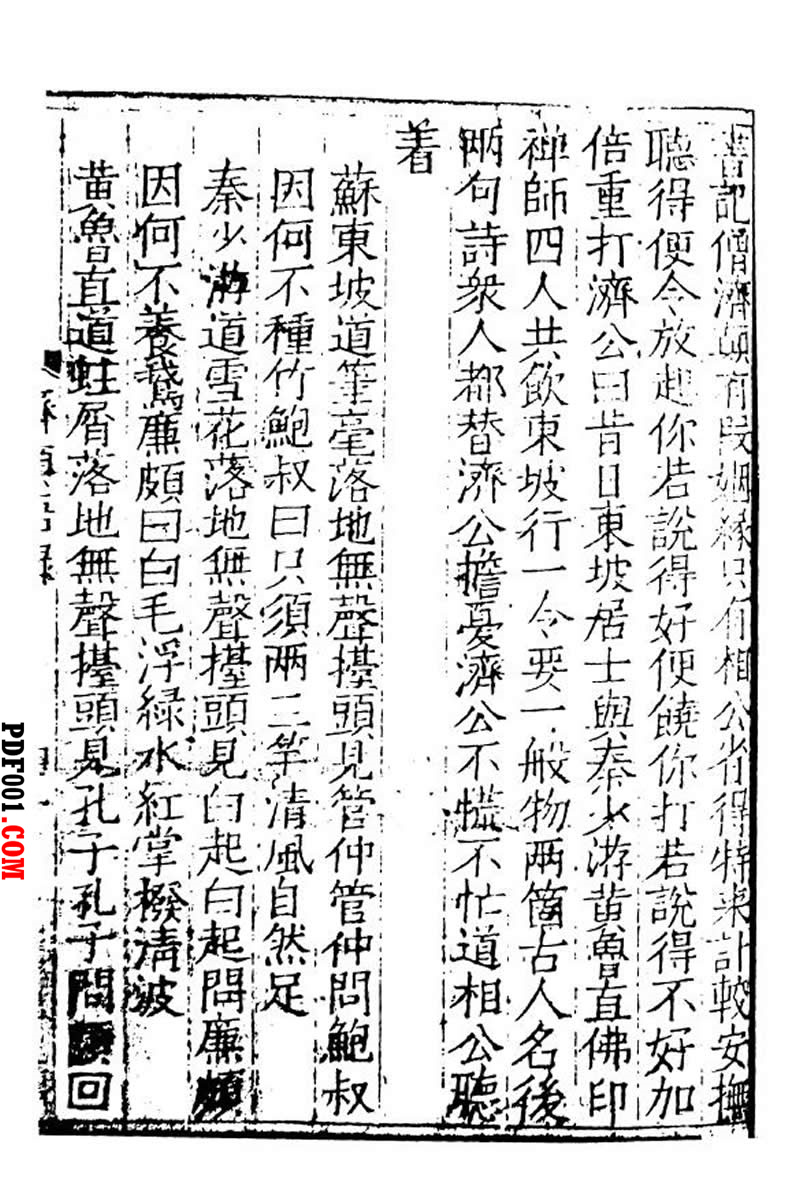 書記僧濟顛有段姻緣只有相公省得特來計較安撫
聽得便令放起你若說得好便饒你打若說得不好加
倍重打濟公曰昔日東坡居士與秦少游黄魯直佛印
禅師四人共飲東坡行一令要一般物两箇古人名後
兩句詩衆人都替濟公擔憂濟公不慌不忙道相公聽
着
蘇東坡道筆毫落地無聲擡頭見管仲管仲問鮑叔
因何不種竹鮑叔曰只須两三竿清風自然足
秦少游道雪花落地無聲擡頭見白起白起問廉頗
因何不養鵞廉頗曰白毛浮緑水紅掌撥清波
黄魯直道蛀屑落地無聲擡頭見孔子孔子問顏回
濟顛語録
PDF001.COM